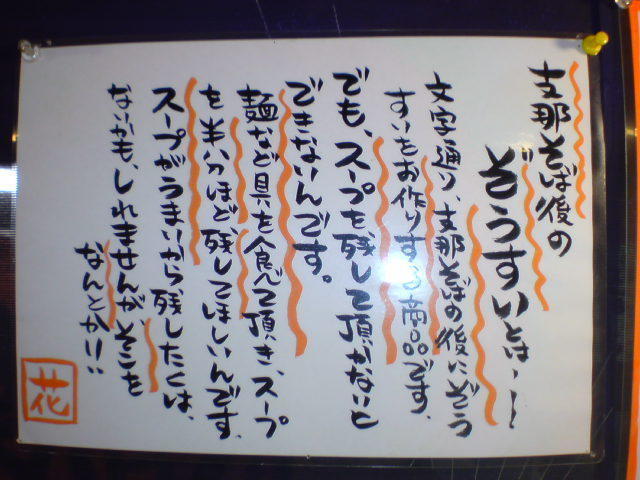 支那そば後の
ぞうすいとは〜〜
文字通り、支那そばの後にぞう
すいをお作りする商品です。
でも、スープを残して頂かないと
できないんです。
麺など具を食べて頂き、スープ
を半分ほど残してほしいんです。
スープがうまいから残したくは、
ないかも、しれませんがそこを
なんとか!!
花